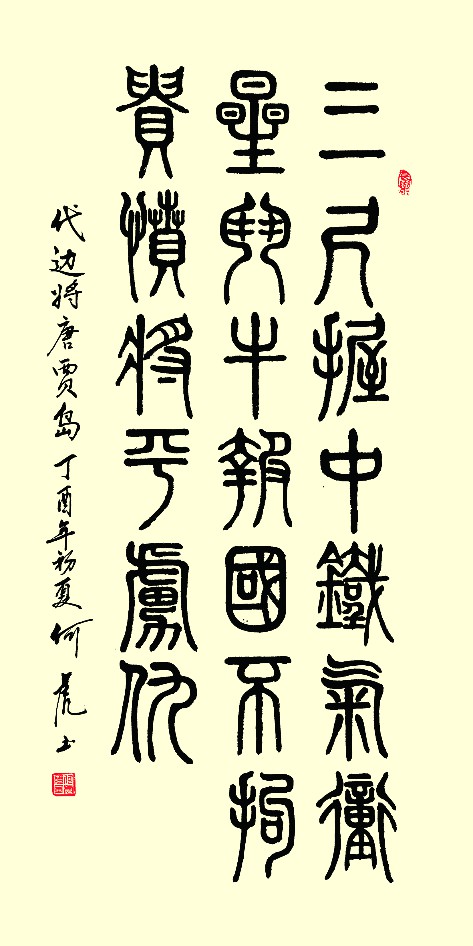 三尺握中鐵氣衝
星鬥牛報國不拘
貴憤將平虜仇
代边将唐贾岛丁酉年初夏何虎书